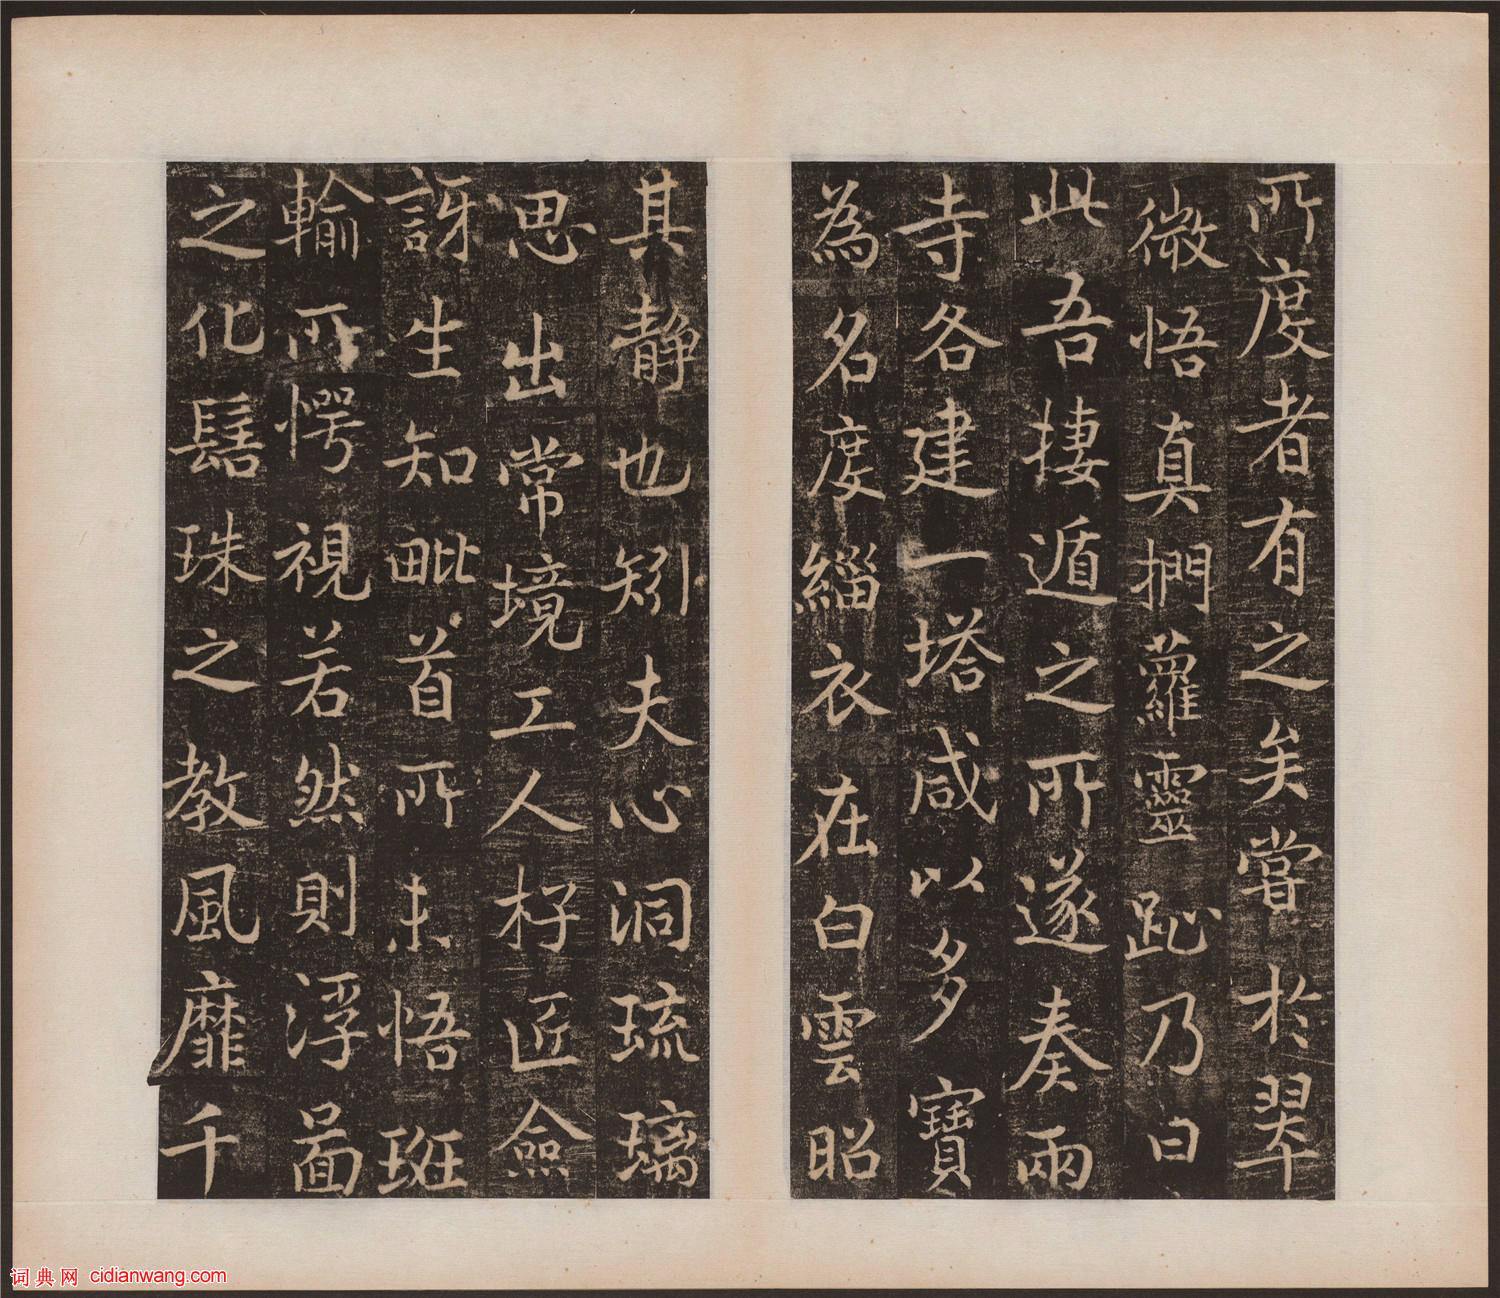 所度者有之矣嘗於翠
微悟真捫蘿靈趾乃曰
此吾捿遁之所遂奏兩
寺各建一塔咸以多寶
為名度緇衣在白雲昭
其靜也矧夫心洞琉璃
思出常境工人杍匠僉
訝生知毗首所未悟班
輸所愕視若然則浮啚
之化髻珠之教風靡千
词典网 cidianwang.com